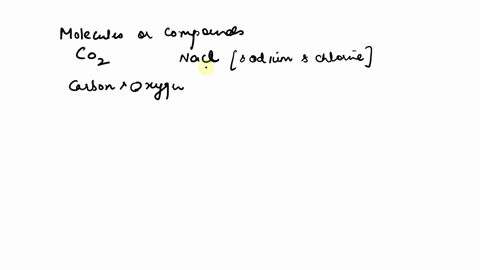 Molecules or Compounds
CO2 NaCl [sodium & chlorine]
Carbon & Oxygen